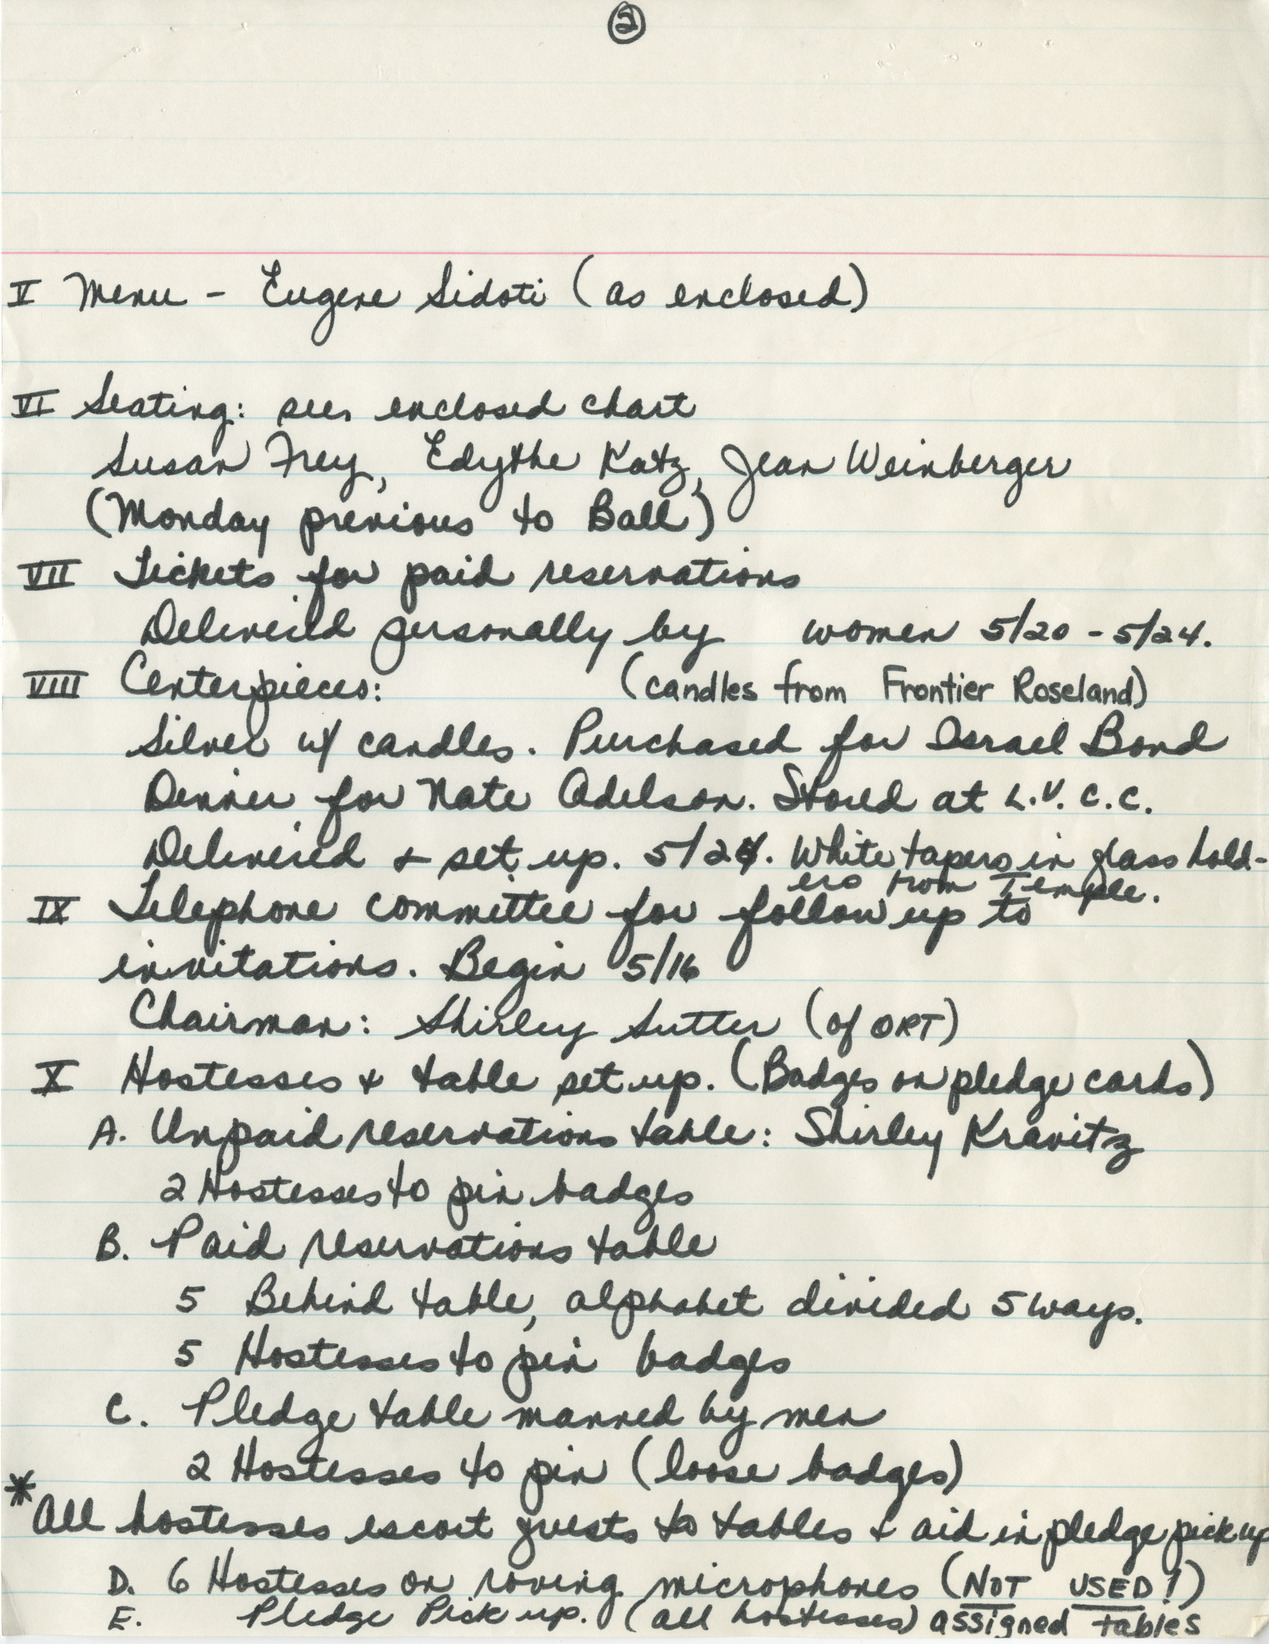 2
V Menu - Eugene Sidoti (as enclosed)
VI Seating: see enclosed chart
Susan Frey, Edythe Katz, Jean Weinberger
(Monday previous to Ball)
VII Tickets for paid reservations
Delivered personally by women 5/20 - 5/24.
VIII Centerpieces: (candles from Frontier Roseland)
Silver w/ candles. Purchased for Israel Bond
Dinner for Nate Adelson. Stored at L.V.C.C.
Delivered + set up. 5/24. White tapers in glass hold-
ers from Temple.
IX Telephone committee for follow up to
invitations. Begin 5/16
Chairman: Shirley Sutter (of ORT)
X Hostesses + table set up. (Badges on pledge cards)
A. Unpaid reservations table: Shirley Kravitz
2 Hostesses to pin badges
B. Paid reservations table
5 Behind table, alphabet divided 5 ways.
5 Hostesses to pin badges
C. Pledge table manned by men
2 Hostesses to pin (loose badges)
*All hostesses escort guests to tables + aid in pledge pick up
D. 6 Hostesses on roving microphones (NOT USED!)
E. Pledge Pick up. (all hostesses) assigned tables